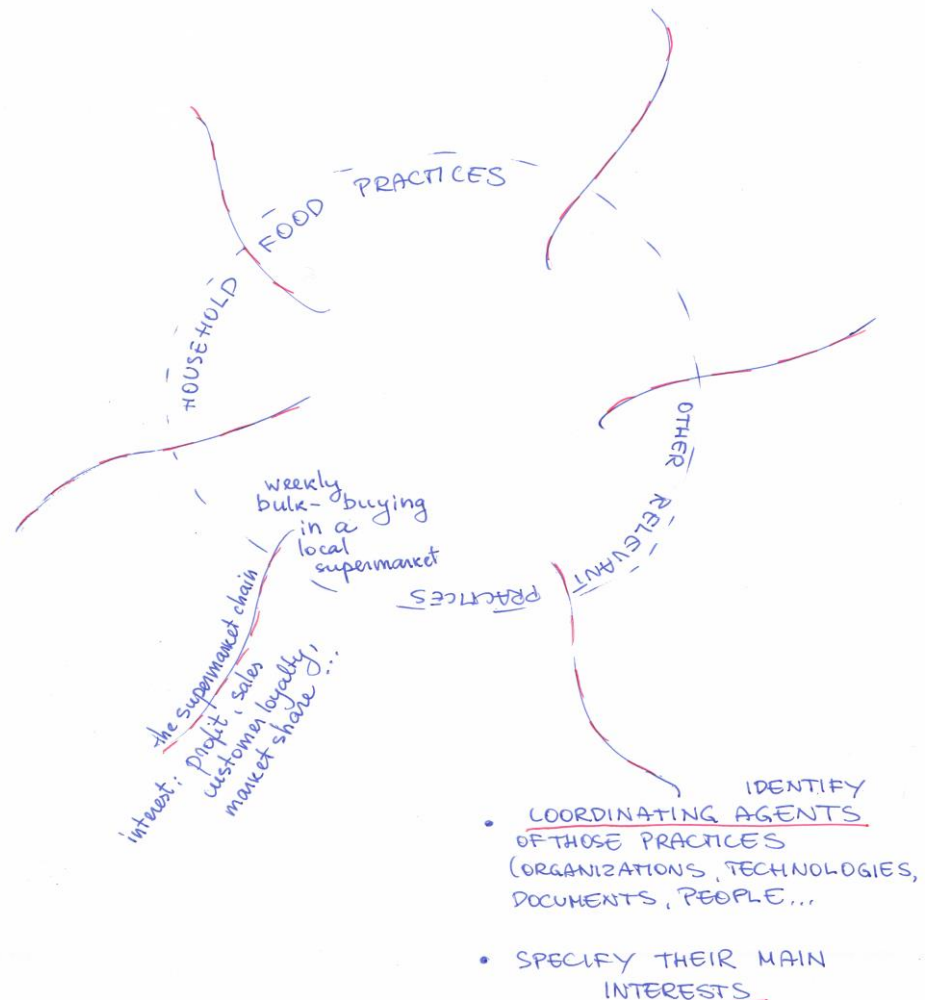 HOUSEHOLD FOOD PRACTICES
OTHER RELEVANT PRACTICES
weekly
bulk- buying
in a
local
supermarket
the supermarket chain
interest: profit, sales
customer loyalty,
market share...
IDENTIFY
• COORDINATING AGENTS
OF THOSE PRACTICES
(ORGANIZATIONS, TECHNOLOGIES,
DOCUMENTS, PEOPLE...
• SPECIFY THEIR MAIN
INTERESTS